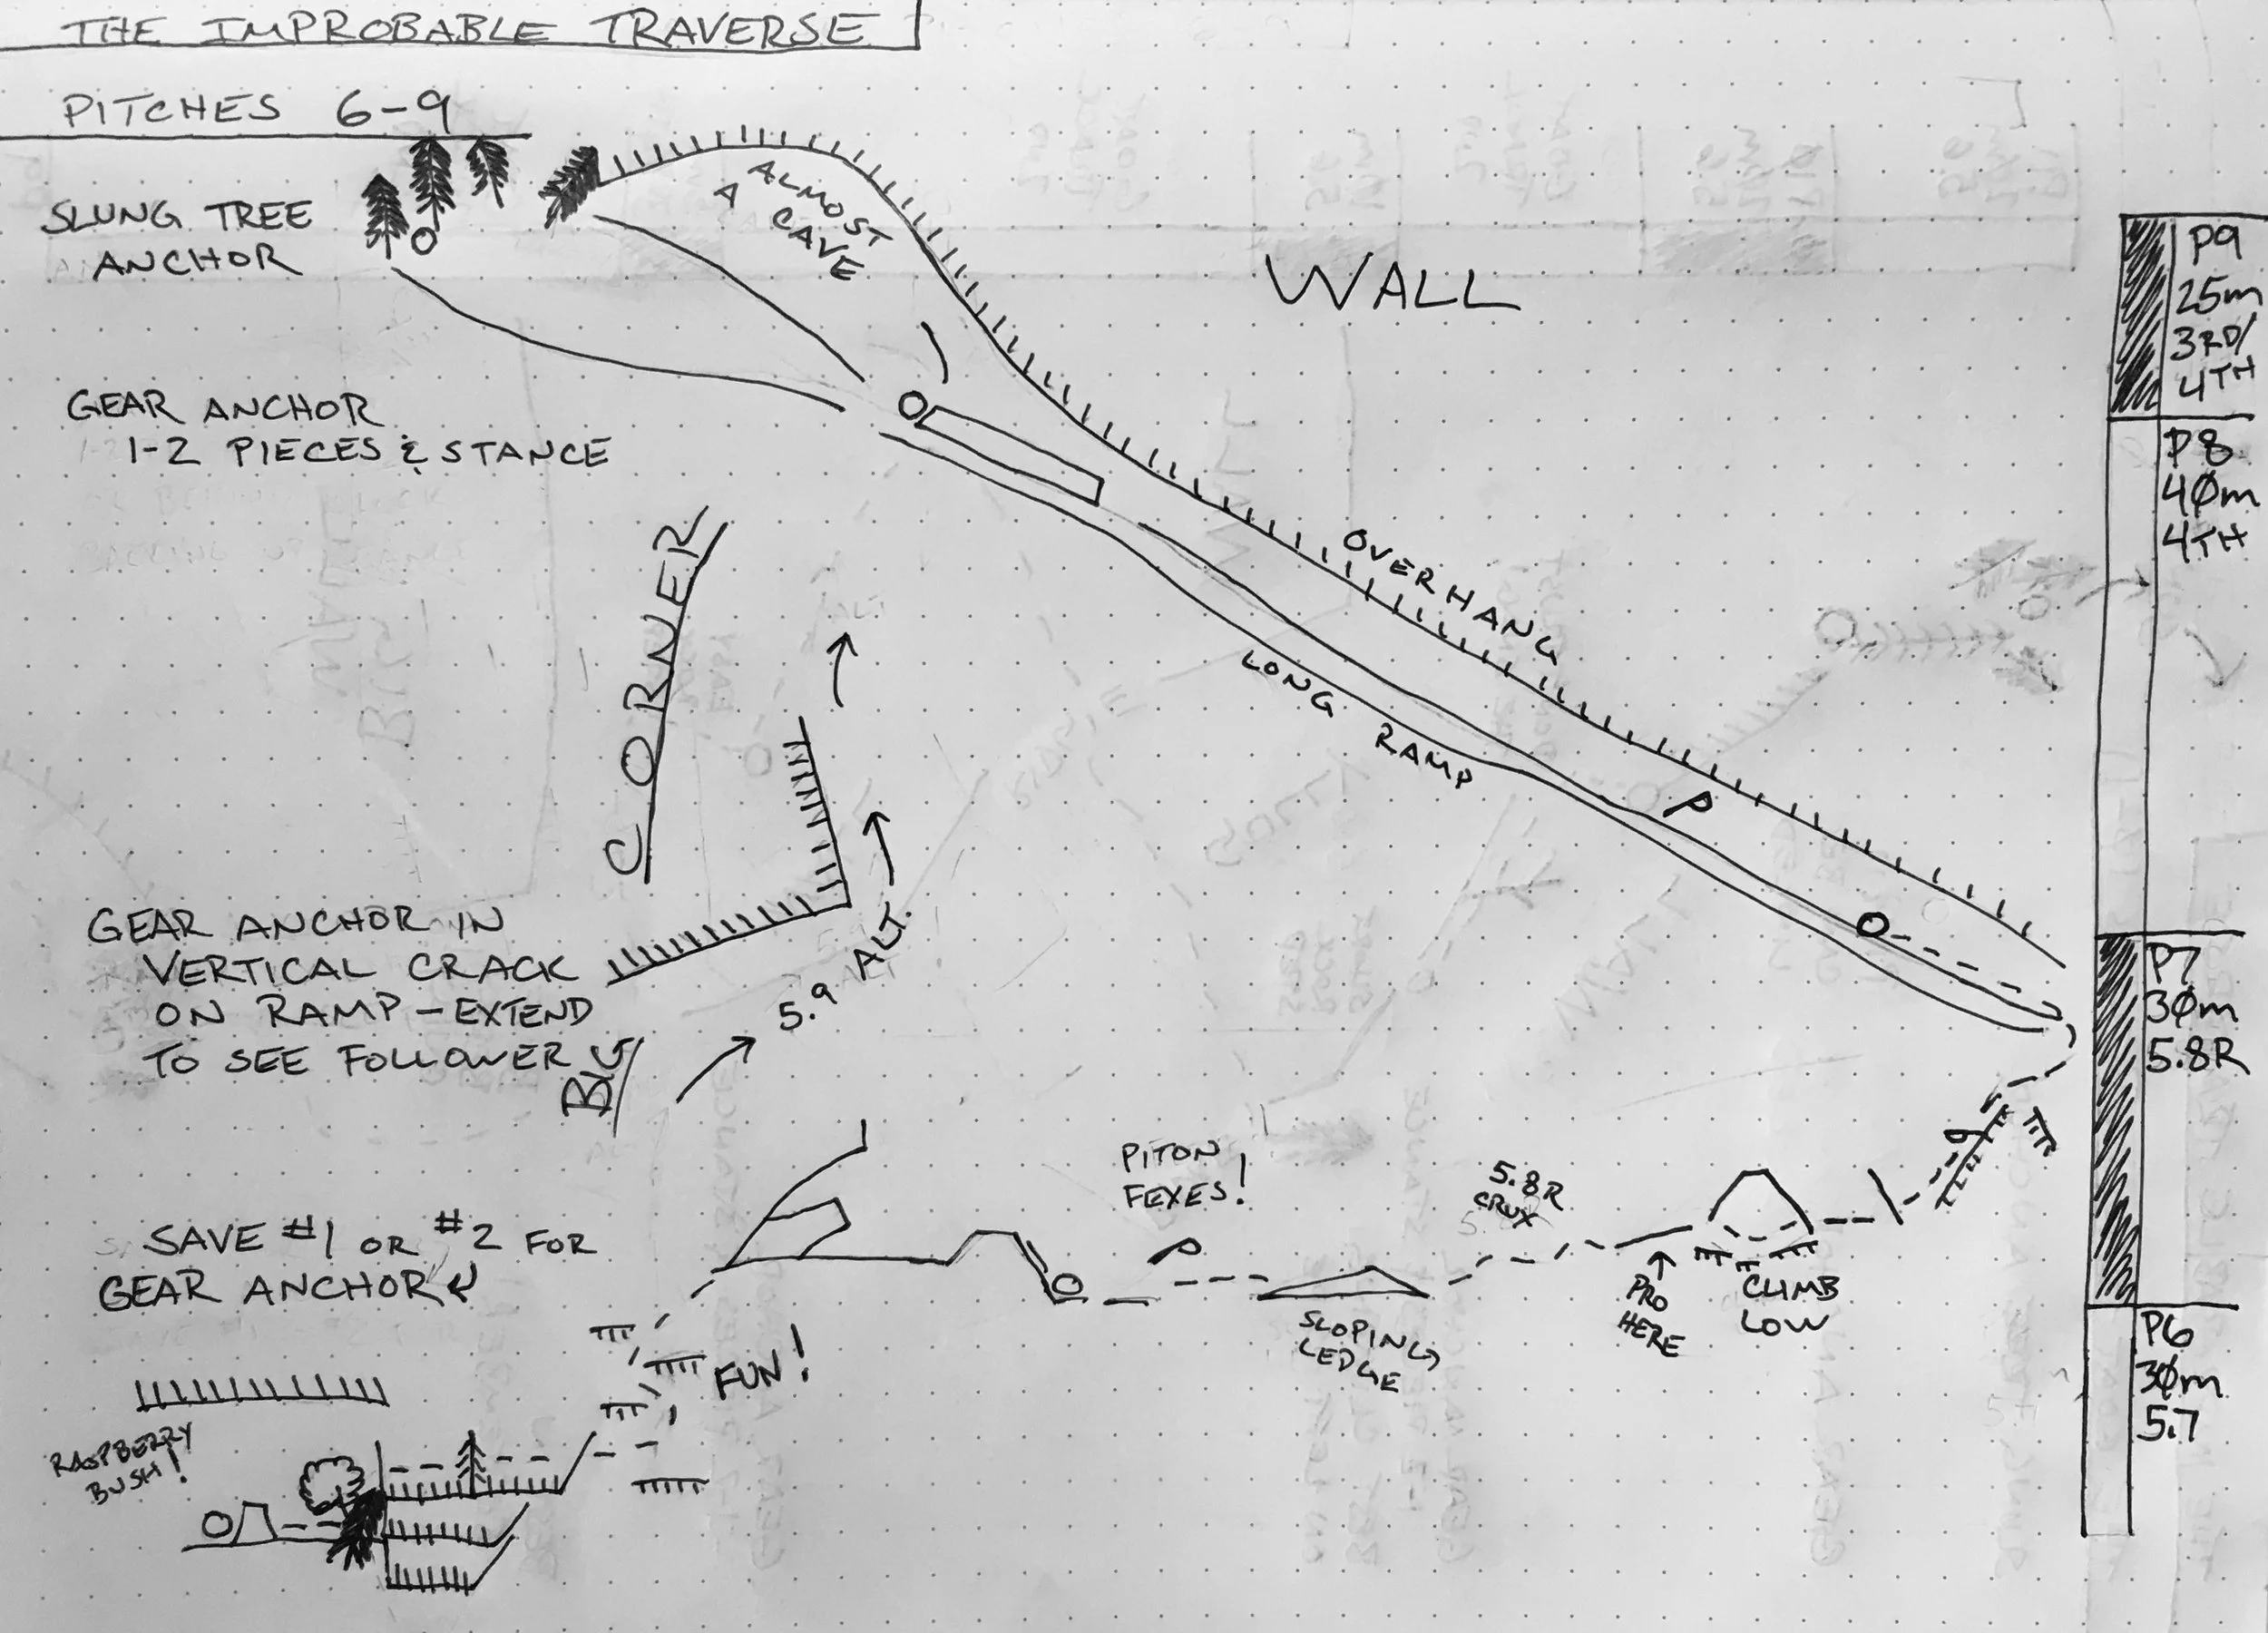 THE IMPROBABLE TRAVERSE
PITCHES 6-9
SLUNG TREE
ANCHOR
ALMOST
A CAVE
WALL
GEAR ANCHOR
1-2 PIECES & STANCE
CORNER
OVERHANG
LONG RAMP
P
GEAR ANCHOR IN
VERTICAL CRACK
ON RAMP - EXTEND
TO SEE FOLLOWER
BIG
5.9 ALT.
PITON
FEXES!
5.8R
CRUX
SAVE #1 OR #2 FOR
GEAR ANCHOR
SLOPING
LEDGE
PRO
HERE
CLIMB
LOW
FUN!
RASPBERRY
BUSH!
P9
25m
3RD/
4TH
P8
4Øm
4TH
P7
3Øm
5.8R
P6
3Øm
5.7